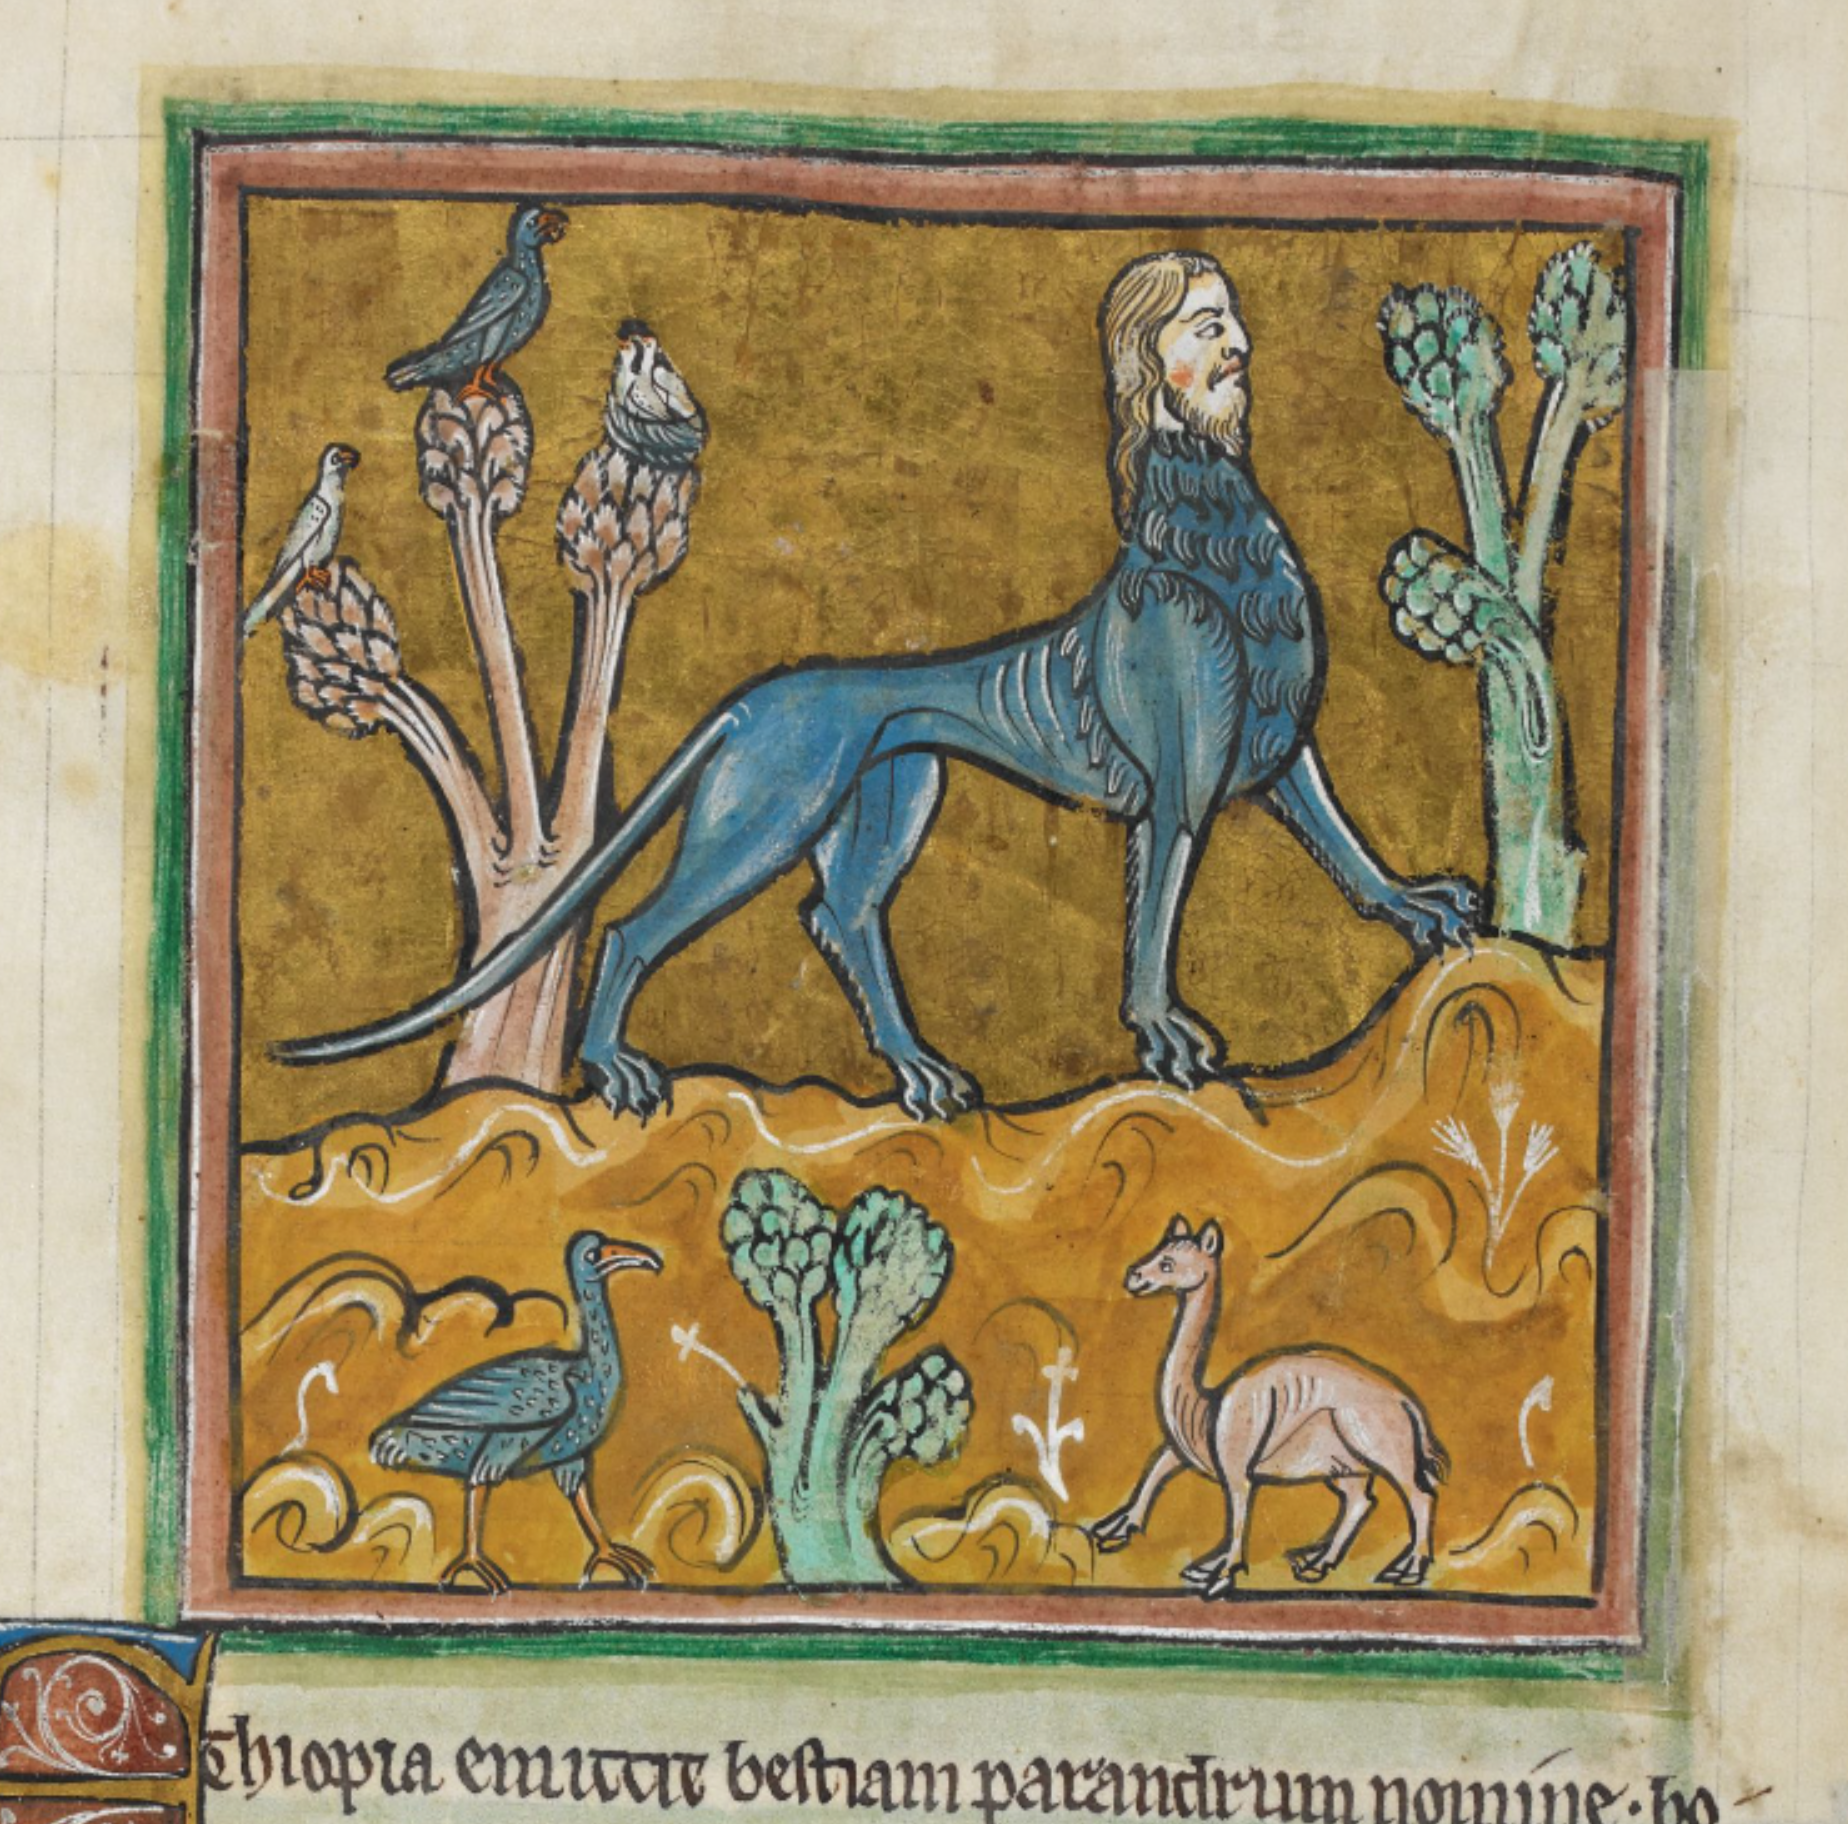 Ethiopia emittit bestiam parandrum nomine · bo-